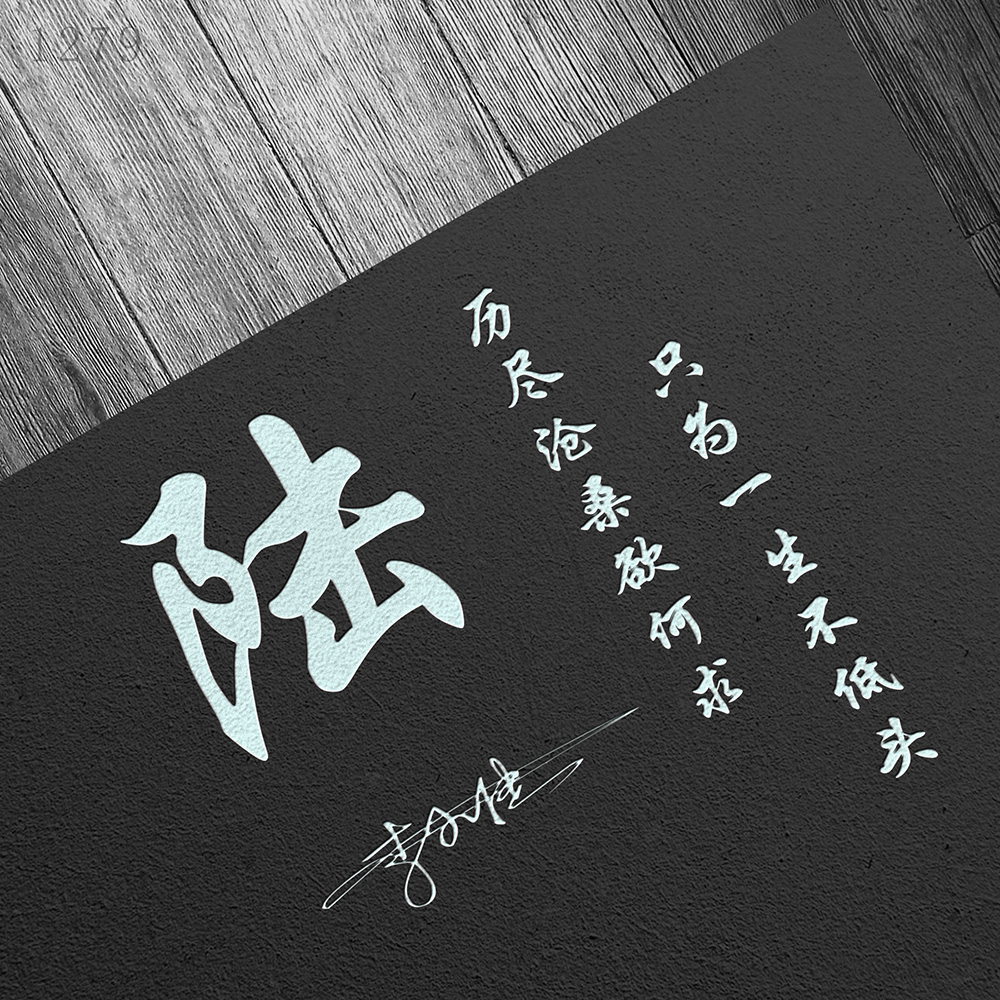 1279
只为一生不低头
历尽沧桑欲何求
陆